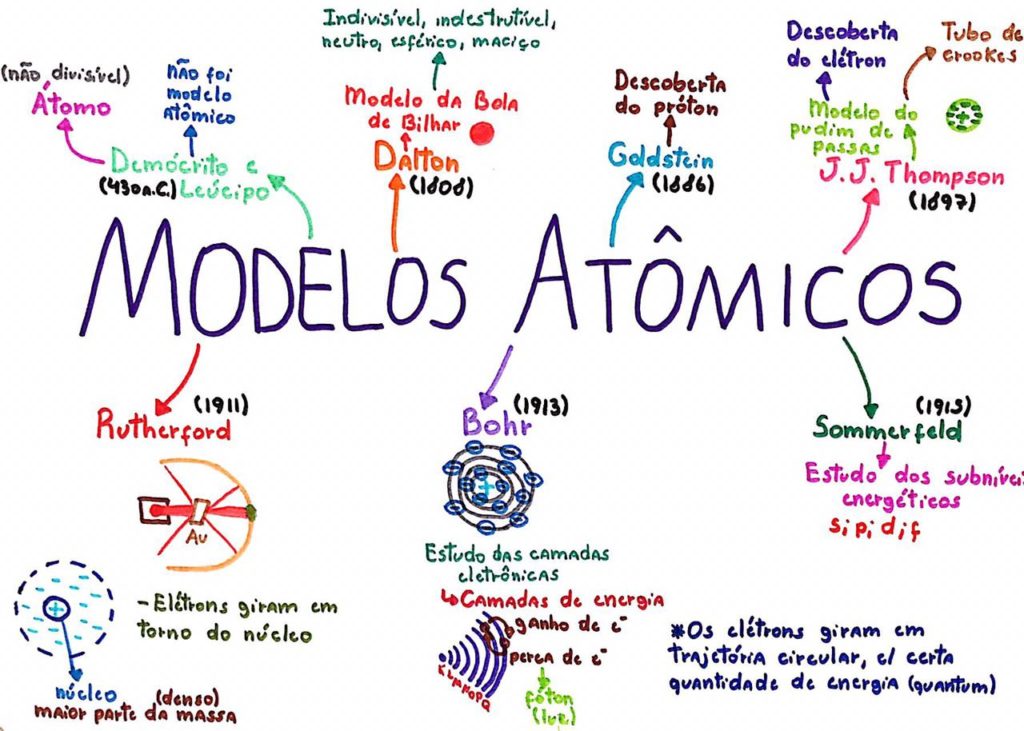 (não divisível)
Átomo
não foi
modelo
atômico
Demócrito e
(430 a.C.) Leúcipo
Indivisível, indestrutível,
neutro, esférico, maciço
Modelo da Bola
de Bilhar
Dalton
(1808)
Descoberta
do próton
Goldstein
(1886)
Descoberta
do elétron
Tubo de
crookes
Modelo do
pudim de
passas
+
J.J. Thompson
(1897)
MODELOS ATÔMICOS
(1911)
Rutherford
Au
+
- Elétrons giram em
torno do núcleo
núcleo (denso)
maior parte da massa
(1913)
Bohr
+
Estudo das camadas
eletrônicas
↳ Camadas de energia
ganho de e⁻
perca de e⁻
K L M N O P Q
fóton
(luz)
(1915)
Sommerfeld
Estudo dos subníveis
energéticos
s; p; d; f
*Os elétrons giram em
trajetória circular, c/ certa
quantidade de energia (quantum)